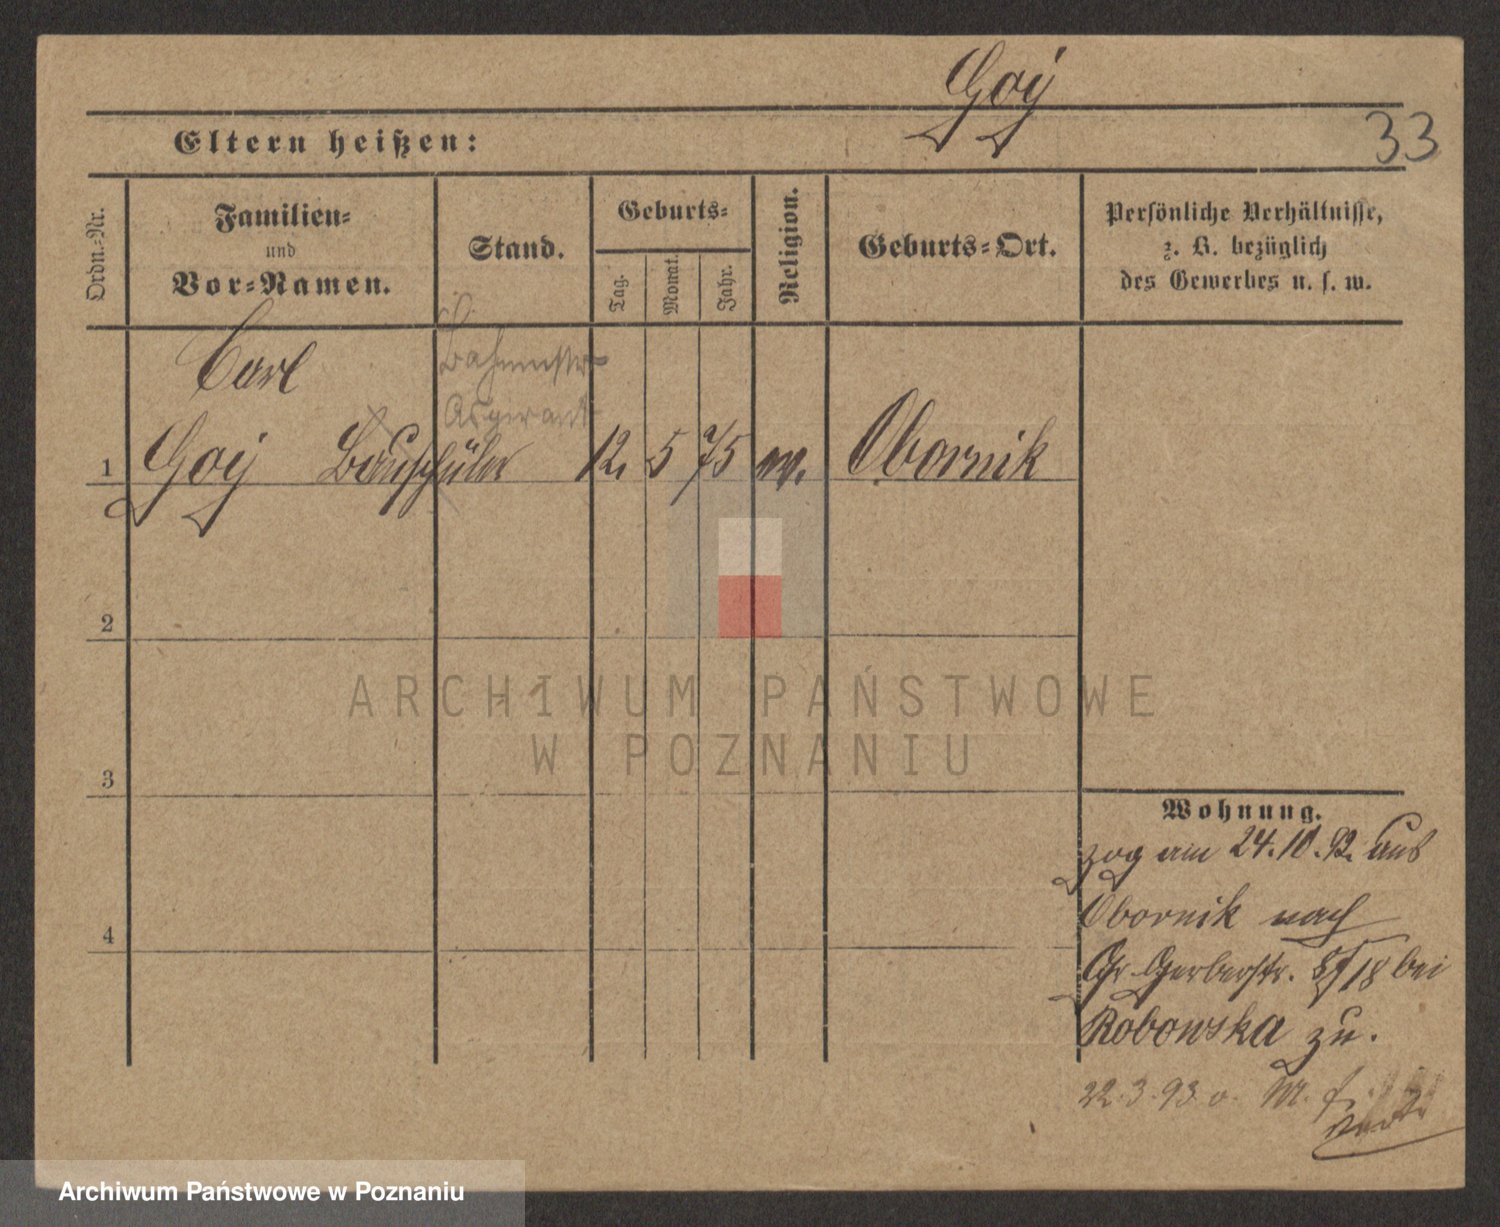 Goÿ
33
Eltern heißen:
Ordn.-Nr.
Familien-
und
Vor-Namen.
Stand.
Geburts-
Tag.
Monat.
Jahr.
Religion.
Geburts-Ort.
Persönliche Verhältnisse,
z. B. bezüglich
des Gewerbes u. s. w.
Carl
Aspirant
1 Goÿ Bauschüler 12. 5 75 Obornik
2
3
4
ARCHIWUM PAŃSTWOWE
W POZNANIU
Wohnung.
zog am 24.10.92. aus
Obornik nach
Gr Gerberstr. 18 bei
Robowska zu.
22.3.93
Archiwum Państwowe w Poznaniu